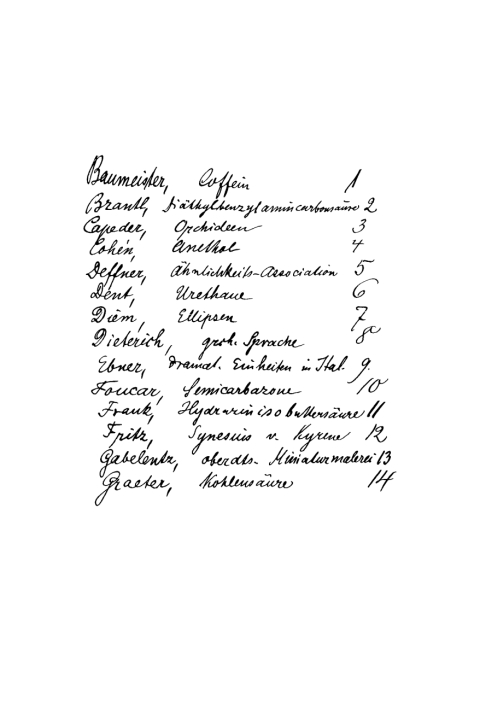 Baumeister, Coffein 1
Brantl, Diäthylbenzylamincarbonsäure 2
Capeder, Orchideen 3
Cohén, Anethol 4
Deffner, Ähnlichkeits-Association 5
Dent, Urethane 6
Diem, Ellipsen 7
Dieterich, Sprache 8
Ebner, Dramat. Einheiten in Ital. 9.
Foucar, Semicarbazone 10
Frank, Hydrazinisobuttersäure 11
Fritz, Synesius v. Kyrene 12
Gabelentz, oberdts. Miniaturmalerei 13
Graeter, Kohlensäure 14